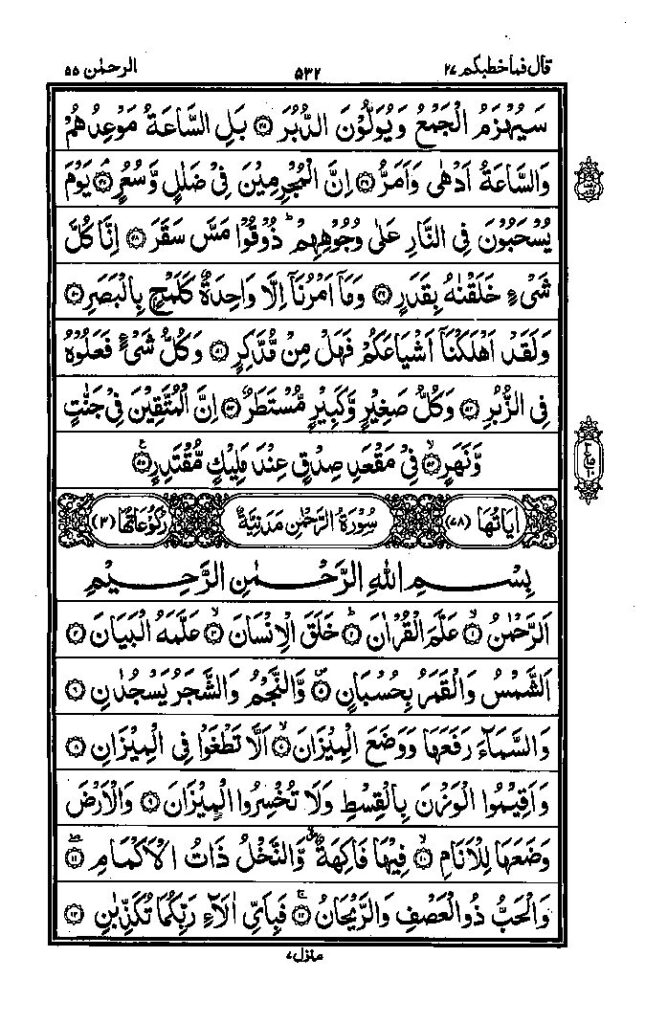 قال فما خطبكم ٢٧ ٥٣٢ الرحمٰن ٥٥
سَيُهْزَمُ الْجَمْعُ وَيُوَلُّوْنَ الدُّبُرَ ﴿٤٥﴾ بَلِ السَّاعَةُ مَوْعِدُهُمْ
وَالسَّاعَةُ اَدْهٰى وَاَمَرُّ ﴿٤٦﴾ اِنَّ الْمُجْرِمِيْنَ فِيْ ضَلٰلٍ وَّسُعُرٍ ﴿٤٧﴾ يَوْمَ
يُسْحَبُوْنَ فِي النَّارِ عَلٰى وُجُوْهِهِمْ ؕ ذُوْقُوْا مَسَّ سَقَرَ ﴿٤٨﴾ اِنَّا كُلَّ
شَيْءٍ خَلَقْنٰهُ بِقَدَرٍ ﴿٤٩﴾ وَمَاۤ اَمْرُنَاۤ اِلَّا وَاحِدَةٌ كَلَمْحٍۭ بِالْبَصَرِ ﴿٥٠﴾
وَلَقَدْ اَهْلَكْنَاۤ اَشْيَاعَكُمْ فَهَلْ مِنْ مُّدَّكِرٍ ﴿٥١﴾ وَكُلُّ شَيْءٍ فَعَلُوْهُ
فِي الزُّبُرِ ﴿٥٢﴾ وَكُلُّ صَغِيْرٍ وَّكَبِيْرٍ مُّسْتَطَرٌ ﴿٥٣﴾ اِنَّ الْمُتَّقِيْنَ فِيْ جَنّٰتٍ
وَّنَهَرٍ ﴿٥٤﴾ فِيْ مَقْعَدِ صِدْقٍ عِنْدَ مَلِيْكٍ مُّقْتَدِرٍ ﴿٥٥﴾
اٰيَاتُهَا (٧٨) سُوْرَةُ الرَّحْمٰنِ مَدَنِيَّةٌ رُكُوْعَاتُهَا (٣)
بِسْمِ اللهِ الرَّحْمٰنِ الرَّحِيْمِ
اَلرَّحْمٰنُ ﴿١﴾ عَلَّمَ الْقُرْاٰنَ ﴿٢﴾ خَلَقَ الْاِنْسَانَ ﴿٣﴾ عَلَّمَهُ الْبَيَانَ ﴿٤﴾
اَلشَّمْسُ وَالْقَمَرُ بِحُسْبَانٍ ﴿٥﴾ وَّالنَّجْمُ وَالشَّجَرُ يَسْجُدٰنِ ﴿٦﴾
وَالسَّمَآءَ رَفَعَهَا وَوَضَعَ الْمِيْزَانَ ﴿٧﴾ اَلَّا تَطْغَوْا فِي الْمِيْزَانِ ﴿٨﴾
وَاَقِيْمُوا الْوَزْنَ بِالْقِسْطِ وَلَا تُخْسِرُوا الْمِيْزَانَ ﴿٩﴾ وَالْاَرْضَ
وَضَعَهَا لِلْاَنَامِ ﴿١٠﴾ فِيْهَا فَاكِهَةٌ وَّالنَّخْلُ ذَاتُ الْاَكْمَامِ ﴿١١﴾
وَالْحَبُّ ذُو الْعَصْفِ وَالرَّيْحَانُ ﴿١٢﴾ فَبِاَيِّ اٰلَآءِ رَبِّكُمَا تُكَذِّبٰنِ ﴿١٣﴾
منزل ٧